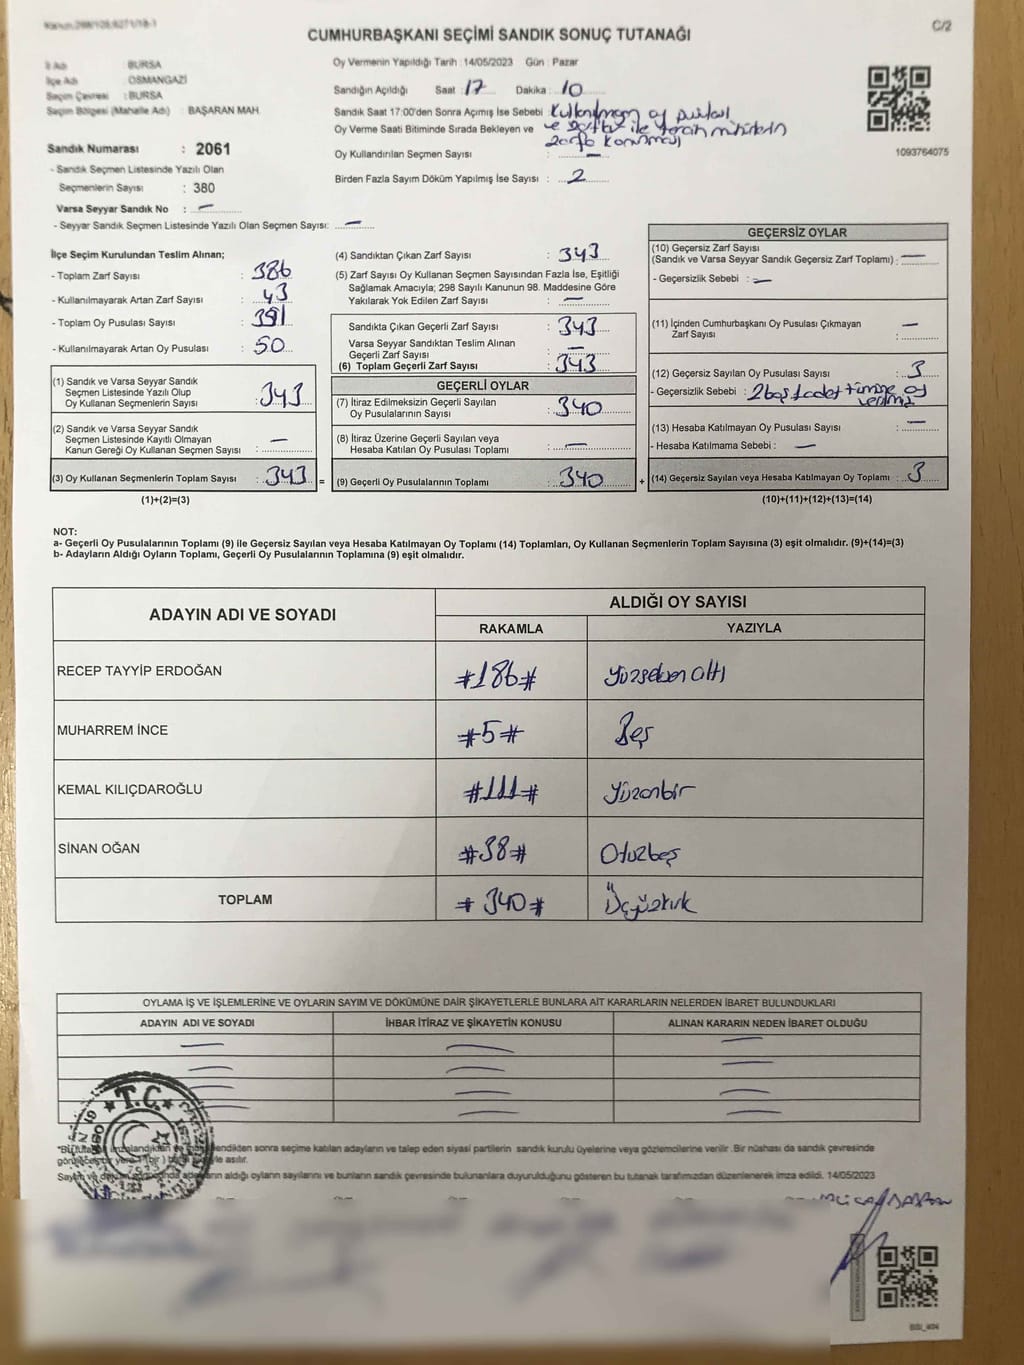 CUMHURBAŞKANI SEÇİMİ SANDIK SONUÇ TUTANAĞI
C/2
İl Adı : BURSA
İlçe Adı : OSMANGAZİ
Seçim Çevresi : BURSA
Seçim Bölgesi (Mahalle Adı) : BAŞARAN MAH.
Sandık Numarası : 2061
- Sandık Seçmen Listesinde Yazılı Olan
Seçmenlerin Sayısı : 380
Varsa Seyyar Sandık No : —
- Seyyar Sandık Seçmen Listesinde Yazılı Olan Seçmen Sayısı: —
Oy Vermenin Yapıldığı Tarih : 14/05/2023 Gün : Pazar
Sandığın Açıldığı Saat : 17 Dakika : 10
Sandık Saat 17:00'den Sonra Açımış İse Sebebi : Kullanılmayan oy pusulası
Oy Verme Saati Bitiminde Sırada Bekleyen ve ve zarflar ile tercih mührünün
zarfa konulması
Oy Kullandırılan Seçmen Sayısı : —
Birden Fazla Sayım Döküm Yapılmış İse Sayısı : 2
1093764075
İlçe Seçim Kurulundan Teslim Alınan;
- Toplam Zarf Sayısı : 386
- Kullanılmayarak Artan Zarf Sayısı : 43
- Toplam Oy Pusulası Sayısı : 391
- Kullanılmayarak Artan Oy Pusulası : 50
(1) Sandık ve Varsa Seyyar Sandık
Seçmen Listesinde Yazılı Olup
Oy Kullanan Seçmenlerin Sayısı : 343
(2) Sandık ve Varsa Seyyar Sandık
Seçmen Listesinde Kayıtlı Olmayan
Kanun Gereği Oy Kullanan Seçmen Sayısı : —
(3) Oy Kullanan Seçmenlerin Toplam Sayısı : 343 =
(1)+(2)=(3)
(4) Sandıktan Çıkan Zarf Sayısı : 343
(5) Zarf Sayısı Oy Kullanan Seçmen Sayısından Fazla İse, Eşitliği
Sağlamak Amacıyla; 298 Sayılı Kanunun 98. Maddesine Göre
Yakılarak Yok Edilen Zarf Sayısı : —
Sandıkta Çıkan Geçerli Zarf Sayısı : 343
Varsa Seyyar Sandıktan Teslim Alınan
Geçerli Zarf Sayısı : —
(6) Toplam Geçerli Zarf Sayısı : 343
GEÇERLİ OYLAR
(7) İtiraz Edilmeksizin Geçerli Sayılan
Oy Pusulalarının Sayısı : 340
(8) İtiraz Üzerine Geçerli Sayılan veya
Hesaba Katılan Oy Pusulası Toplamı : —
(9) Geçerli Oy Pusulalarının Toplamı : 340 +
GEÇERSİZ OYLAR
(10) Geçersiz Zarf Sayısı
(Sandık ve Varsa Seyyar Sandık Geçersiz Zarf Toplamı) : —
- Geçersizlik Sebebi : —
(11) İçinden Cumhurbaşkanı Oy Pusulası Çıkmayan
Zarf Sayısı : —
(12) Geçersiz Sayılan Oy Pusulası Sayısı : 3
- Geçersizlik Sebebi : 2 boş 1 adet tümüne oy
verilmiş
(13) Hesaba Katılmayan Oy Pusulası Sayısı : —
- Hesaba Katılmama Sebebi : —
(14) Geçersiz Sayılan veya Hesaba Katılmayan Oy Toplamı : 3
(10)+(11)+(12)+(13)=(14)
NOT:
a- Geçerli Oy Pusulalarının Toplamı (9) ile Geçersiz Sayılan veya Hesaba Katılmayan Oy Toplamı (14) Toplamları, Oy Kullanan Seçmenlerin Toplam Sayısına (3) eşit olmalıdır. (9)+(14)=(3)
b- Adayların Aldığı Oyların Toplamı, Geçerli Oy Pusulalarının Toplamına (9) eşit olmalıdır.
ADAYIN ADI VE SOYADI
ALDIĞI OY SAYISI
RAKAMLA YAZIYLA
RECEP TAYYİP ERDOĞAN #186# Yüzseksen altı
MUHARREM İNCE #5# Beş
KEMAL KILIÇDAROĞLU #111# Yüzonbir
SİNAN OĞAN #38# Otuzbeş
TOPLAM #340# Üçyüzkırk
OYLAMA İŞ VE İŞLEMLERİNE VE OYLARIN SAYIM VE DÖKÜMÜNE DAİR ŞİKAYETLERLE BUNLARA AİT KARARLARIN NELERDEN İBARET BULUNDUKLARI
ADAYIN ADI VE SOYADI İHBAR İTİRAZ VE ŞİKAYETİN KONUSU ALINAN KARARIN NEDEN İBARET OLDUĞU
T.C.
sonra seçime katılan adayların ve talep eden siyasi partilerin sandık kurulu üyelerine veya gözlemcilerine verilir. Bir nüshası da sandık çevresinde
asılır.
aldığı oyların sayılarını ve bunların sandık çevresinde bulunanlara duyurulduğunu gösteren bu tutanak tarafımızdan düzenlenerek imza edildi. 14/05/2023